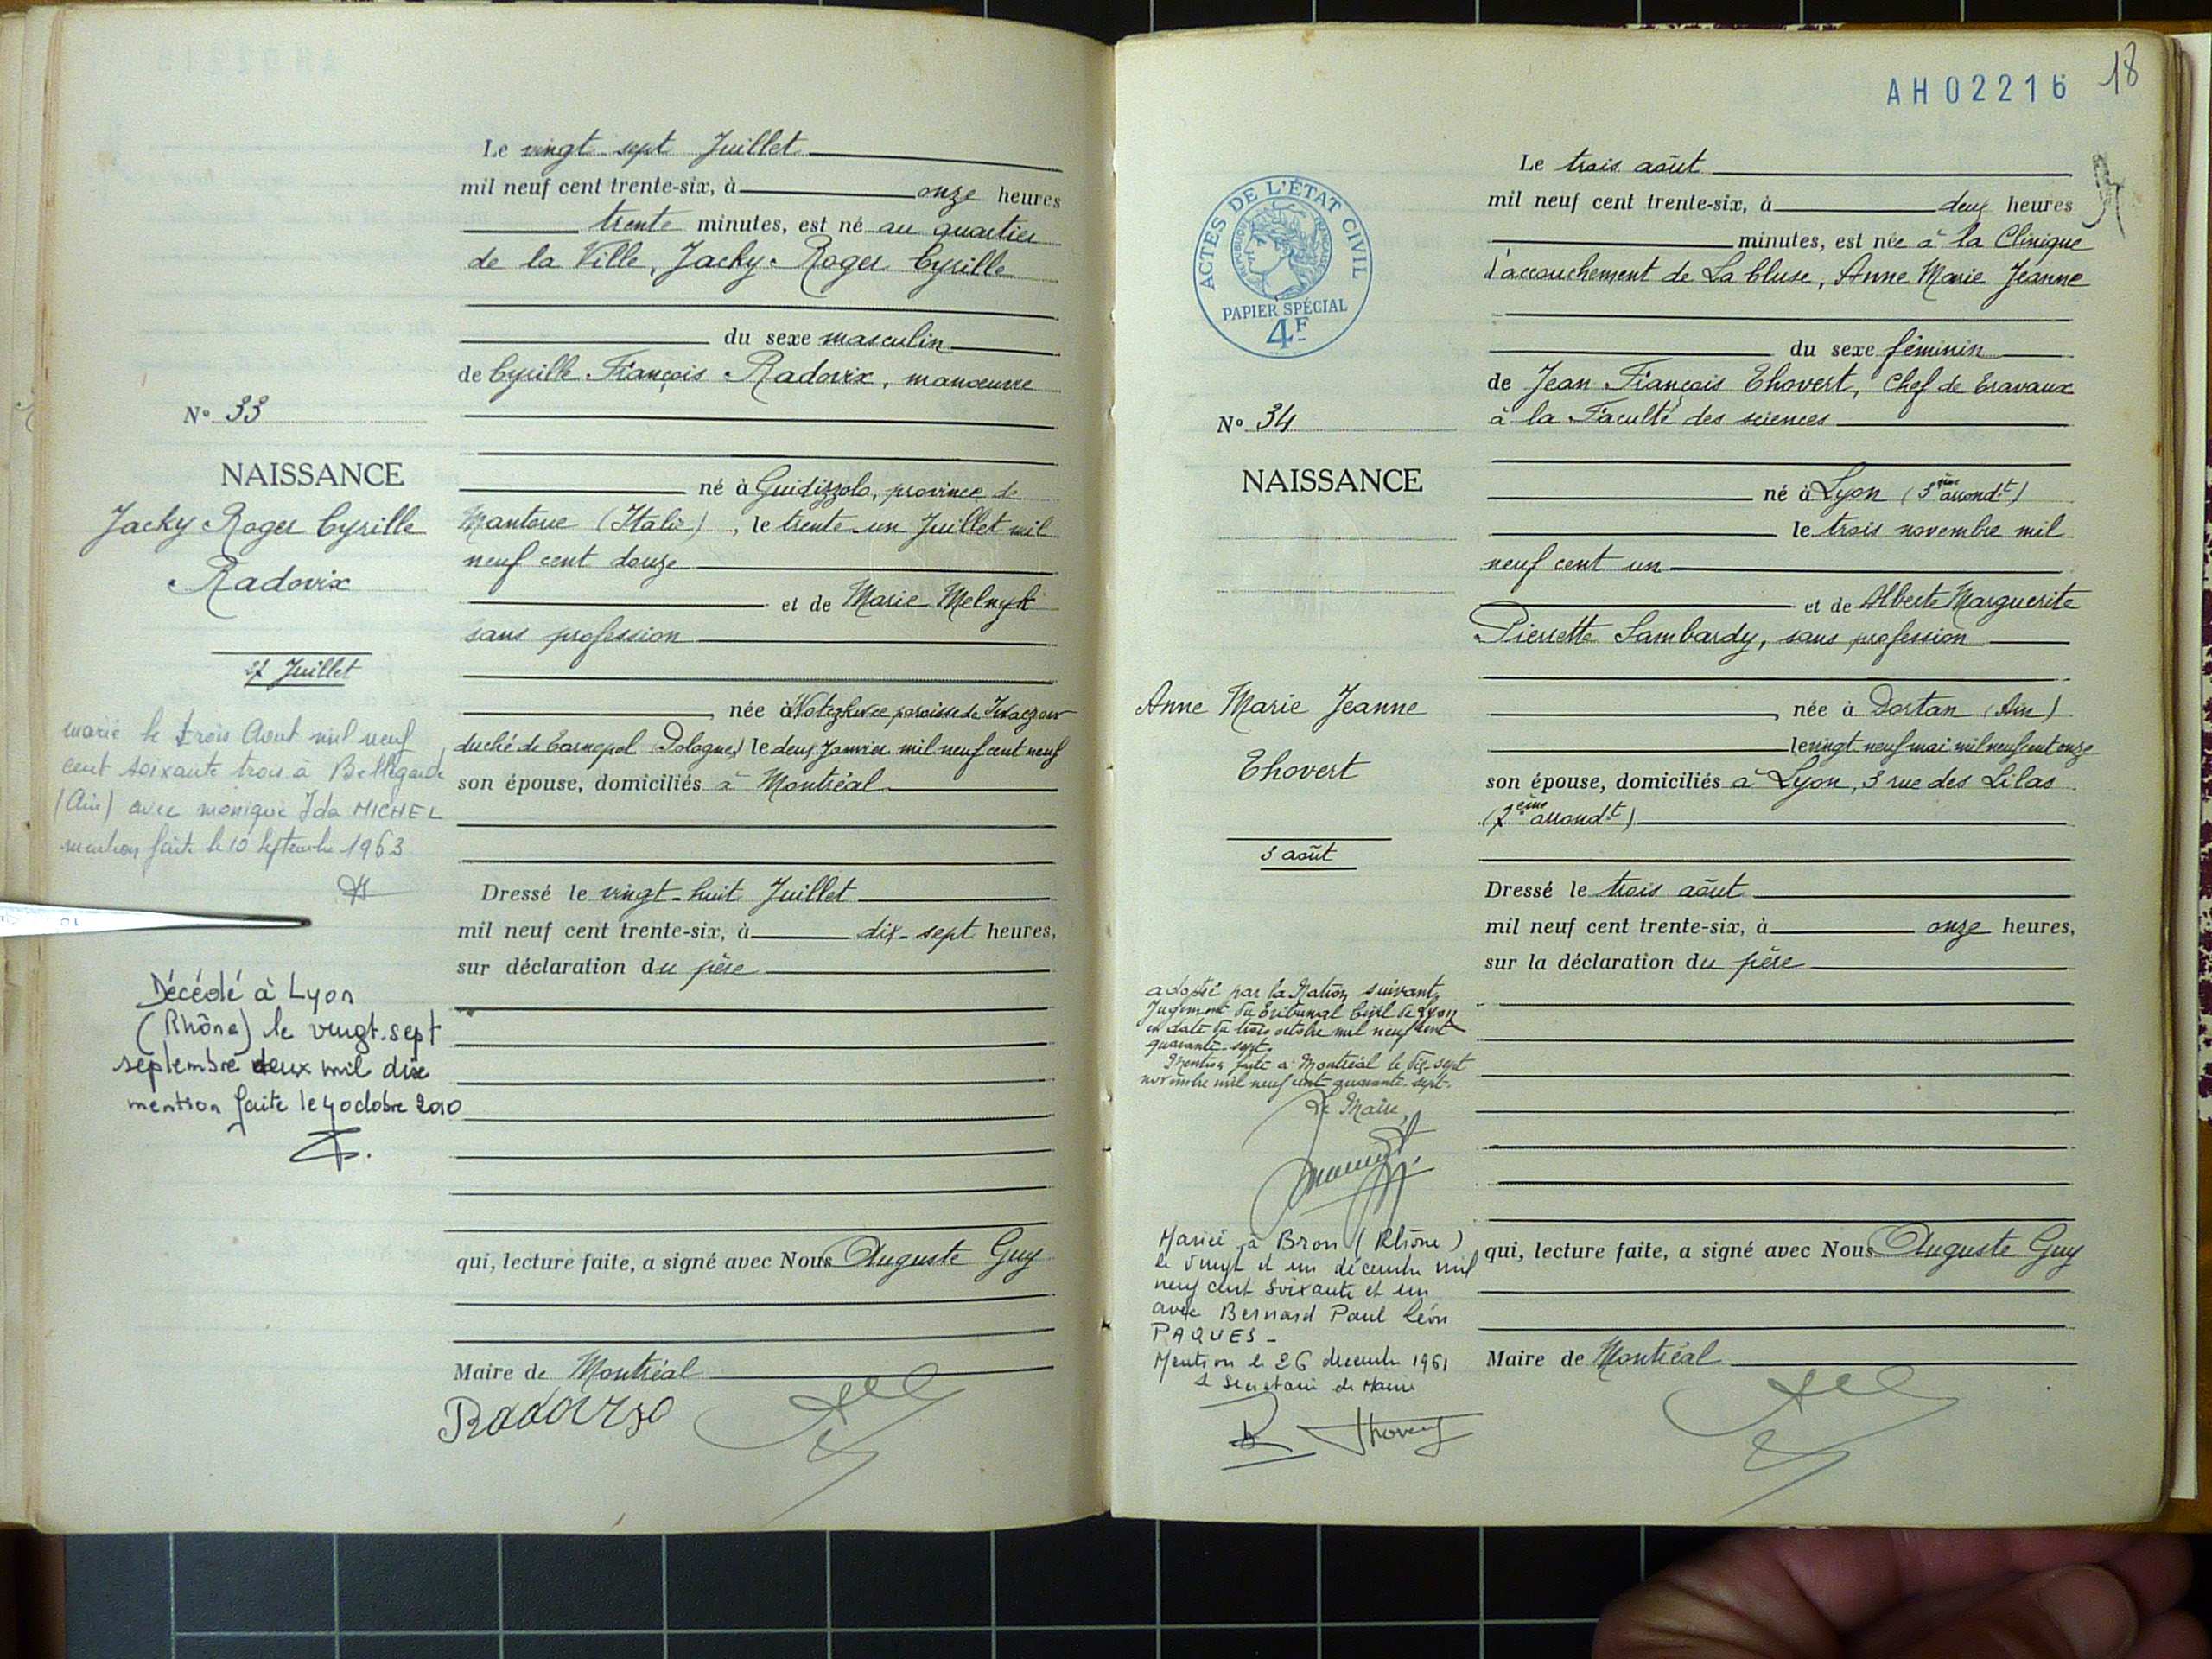 Le vingt sept Juillet
mil neuf cent trente-six, à onze heures
trente minutes, est né au quartier
de la Ville, Jacky Roger Cyrille
du sexe masculin
de Cyrille François Radovix, manoeuvre
N° 33
NAISSANCE
Jacky Roger Cyrille
Radovix
27 Juillet
né à Guidizzolo, province de
Mantoue (Italie), le trente un Juillet mil
neuf cent douze
et de Marie Melnyk
sans profession
née à paroisse de
duché de Tarnopol (Pologne) le deux Janvier mil neuf cent neuf
son épouse, domiciliés à Montréal
marié le trois Aout mil neuf
cent soixante trois à Bellegarde
(Ain) avec monique Ida MICHEL
mention faite le 10 Septembre 1963
Dressé le vingt-huit Juillet
mil neuf cent trente-six, à dix-sept heures,
sur déclaration du père
Décédé à Lyon
(Rhône) le vingt-sept
septembre deux mil dix
mention faite le 4 octobre 2010
qui, lecture faite, a signé avec Nous Auguste Guy
Maire de Montréal
AH02216 18
ACTES DE L'ÉTAT CIVIL
RÉPUBLIQUE FRANÇAISE
PAPIER SPÉCIAL
4F
Le trois août
mil neuf cent trente-six, à deux heures
minutes, est née à la Clinique
d'accouchement de La Cluse, Anne Marie Jeanne
du sexe féminin
de Jean François Thovert, Chef de Travaux
à la Faculté des sciences
N° 34
NAISSANCE
Anne Marie Jeanne
Thovert
3 août
né à Lyon (3ème arrondt)
le trois novembre mil
neuf cent un
et de Alberte Marguerite
Pierrette Lambardy, sans profession
née à Dortan (Ain)
le vingt neuf mai mil neuf cent onze
son épouse, domiciliés à Lyon, 3 rue des Lilas
(7ème arrondt)
Dressé le trois août
mil neuf cent trente-six, à onze heures,
sur la déclaration du père
adoptée par la Nation suivant
Jugement du Tribunal Civil de Lyon
en date du trois octobre mil neuf cent
quarante-sept.
Mention faite à Montréal le dix sept
novembre mil neuf cent quarante-sept.
Le Maire,
Mariée à Bron (Rhône)
le vingt et un décembre mil
neuf cent soixante et un
avec Bernard Paul Léon
PAQUES -
Mention le 26 décembre 1961
Le Secrétaire de Mairie
qui, lecture faite, a signé avec Nous Auguste Guy
Maire de Montréal
Thovert